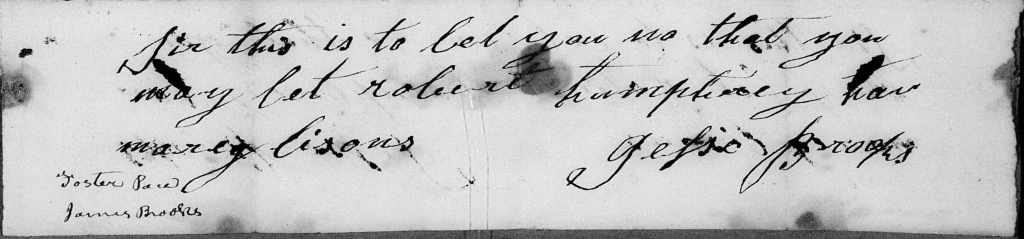 Sir this is to let you no that you
may let robert humphrey hav
marey lisons gesse Brooks
Foster Pace
James Brooks